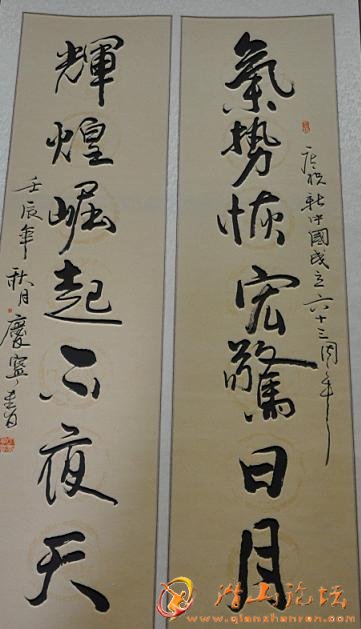 氣势恢宏驚日月
庆祝新中國成立六十三周年
輝煌崛起不夜天
壬辰年秋月慶寧書
潜山论坛
www.qianshanren.com